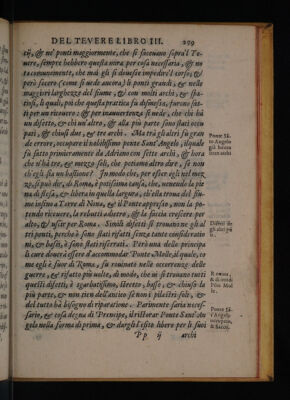 DEL TEVERE LIBRO III. 299
tij, & ne' ponti maggiormente, che si faceuano sopra'l Te-
uere, sempre hebbero questa mira per cosa necessaria, & no-
tacommunemente, che mai gli si douesse impedire'l corso, &
però fecero (come si uede ancora) li ponti grandi, & nelle
maggiori larghezze del fiume, & con molti archi, & spa-
tiosi, li quali, piò che questa pratica fù dismessa, furono fat-
ti per un ricouero: & per inauuertenza si uede, che chi ha
un arco, & chi un altro, & più parte sono stati occu
pati, & chiusi due, & tre archi. Ma trà gli altri fu gran
de errore, occupare il nobilissimo ponte Sant'Angelo, ilquale
fù fatto primieramente da Adriano con sette archi, & hora
che n'hà tre, & mezzo soli, che potiamo altro dire, se non
ch'egli sia un bastione? In modo che, per esser egli nel mez
zo, si può dire, di Roma, è potissima causa, che, uenendo la pie
na di flessa, & libera in quella largura, ch'ella troua dal fiu-
me insino à Torre di Nona, & il Ponte appresso, non la po-
tendo riceuere, la rebutti adietro, & la faccia crescere per
alto, & uscir per Roma. Simili difetti si trouano ne gli al
tri ponti, perche ò sono stati rifatti senza tante considerationi
ni, & bassi, ò sono stati ristretti. Però una delle principa
li cure douerà essere d'accommodar Ponte Molle, il quale, co
me egli è fuor di Roma, fu rouinato nelle occorrenze delle
guerre, & rifatto più uolte, di modo, che ui si trouano tutti
questi difetti, è sgarbatissimo, stretto, basso, & chiuso la
più parte, & non tien dell'antico se non i pilastri soli, &
del tutto ha bisogno di riparatione. Parimente saria neces-
sario, & cosa degna di Prencipe, il ristorar Ponte Sant'An
gelo nella forma di prima, & dargli l'esito libero per li suoi
Pp ij archi
Ponte Sã-
to Angelo
già haueua
sette archi
Difetti de
gli altri põ
ti.
Rouine,
& difetti di
Põte Mol
le.
Ponte Sã-
t'Angelo